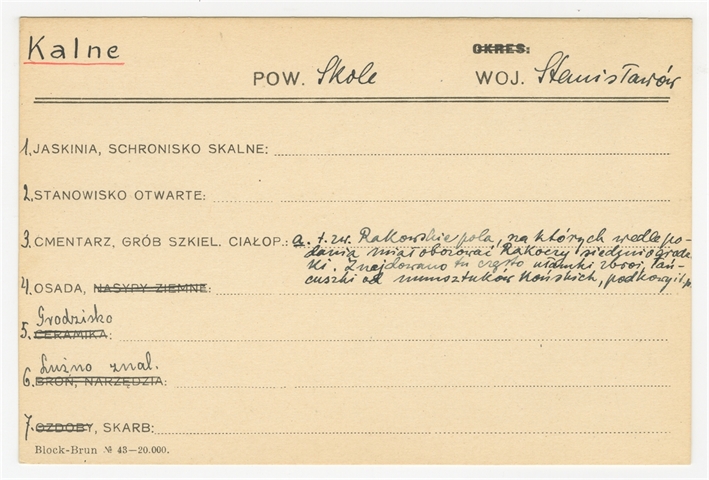 Kalne
OKRES:
POW. Skole WOJ. Stanisławów
1. JASKINIA, SCHRONISKO SKALNE:
2. STANOWISKO OTWARTE:
3. CMENTARZ, GRÓB SZKIEL. CIAŁOP.: a. t. zw. Rakowskie pola, na których wedle po-
dania miał obozować Rakoczy siedmiogrodz
ki. Znajdowano tu często ułamki zbroi, łań-
4. OSADA, NASYPY ZIEMNE: cuszki od munsztuków końskich, podkowy itp.
Grodzisko
5. CERAMIKA:
Luźno znal.
6. BROŃ, NARZĘDZIA:
7. OZDOBY, SKARB:
Block-Brun № 43—20.000.